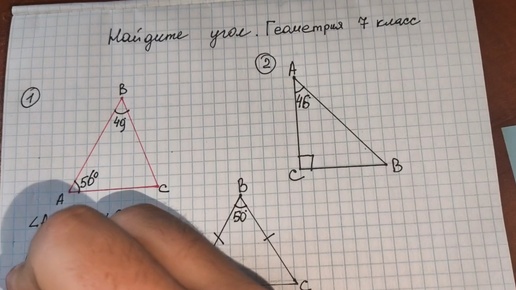 Найдите угол. Геометрия 7 класс
1
B
49
56°
A
C
2
A
46
C
B
B
50°
C